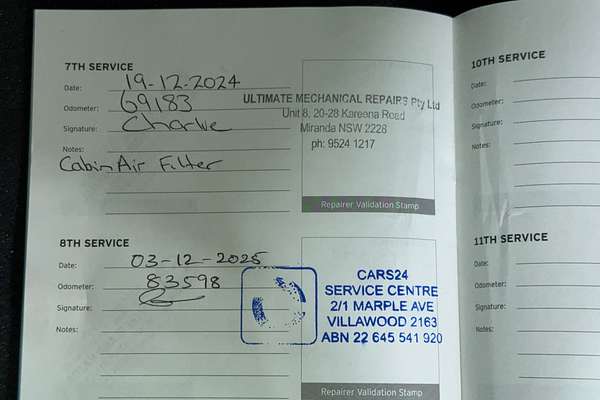 7TH SERVICE
Date: 19-12-2024
Odometer: 69183
Signature: Charlie
Notes:
Cabin Air Filter
ULTIMATE MECHANICAL REPAIRS Pty Ltd
Unit 8, 20-28 Kareena Road
Miranda NSW 2228
ph: 9524 1217
Repairer Validation Stamp
8TH SERVICE
Date: 03-12-2025
Odometer: 83598
Signature:
Notes:
CARS24
SERVICE CENTRE
2/1 MARPLE AVE
VILLAWOOD 2163
ABN 22 645 541 920
Repairer Validation Stamp
10TH SERVICE
Date:
Odometer:
Signature:
Notes:
11TH SERVICE
Date:
Odometer:
Signature:
Notes: